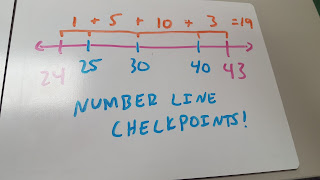 1 + 5 + 10 + 3 = 19
24 25 30 40 43
NUMBER LINE
CHECKPOINTS!